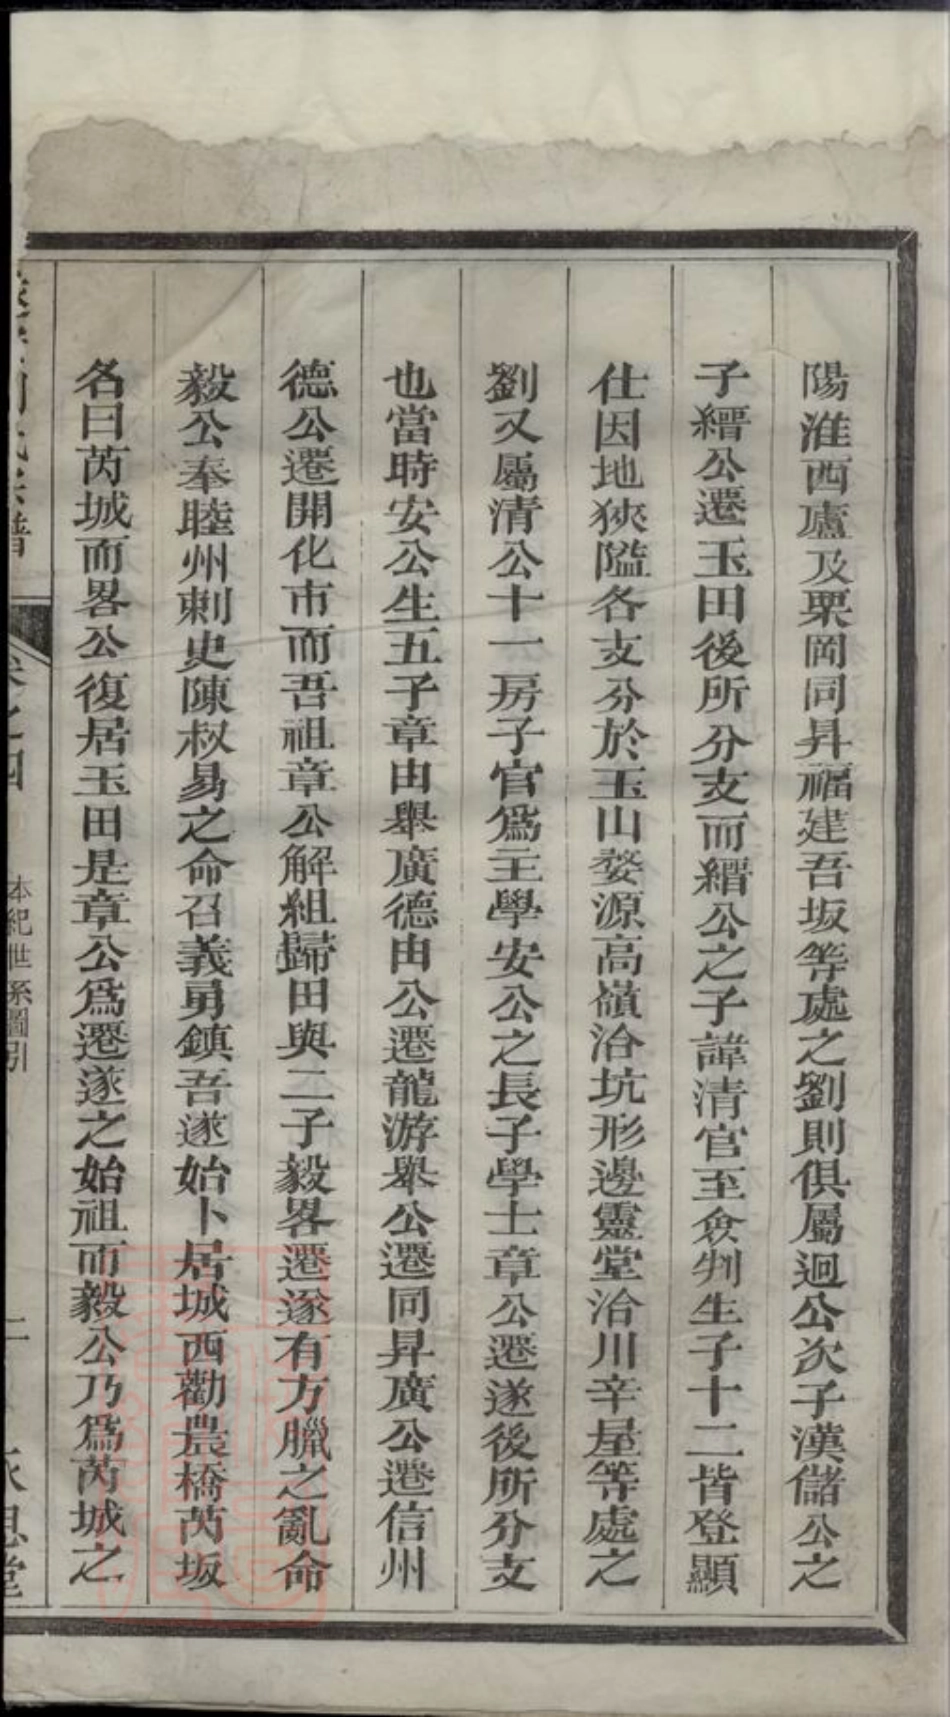 陽淮西廬及栗岡同昇福建吾坂等處之劉則俱屬迴公次子漢儲公之
子縉公遷玉田後所分支而縉公之子諱清官至僉判生子十二皆登顯
仕因地狹隘各支分於玉山婺源高嶺冾坑形邊靈堂冾川辛屋等處之
劉又屬清公十一房子官爲主學安公之長子學士章公遷遂後所分支
也當時安公生五子章由舉廣德由公遷龍游舉公遷同昇廣公遷信州
德公遷開化市而吾祖章公解組歸田與二子毅畧遷遂有方臘之亂命
毅公奉睦州刺史陳叔易之命召義勇鎮吾遂始卜居城西勸農橋芮坂
名曰芮城而畧公復居玉田是章公爲遷遂之始祖而毅公乃爲芮城之
氏宗譜
卷之四
本紀世系圖引
二
永思堂